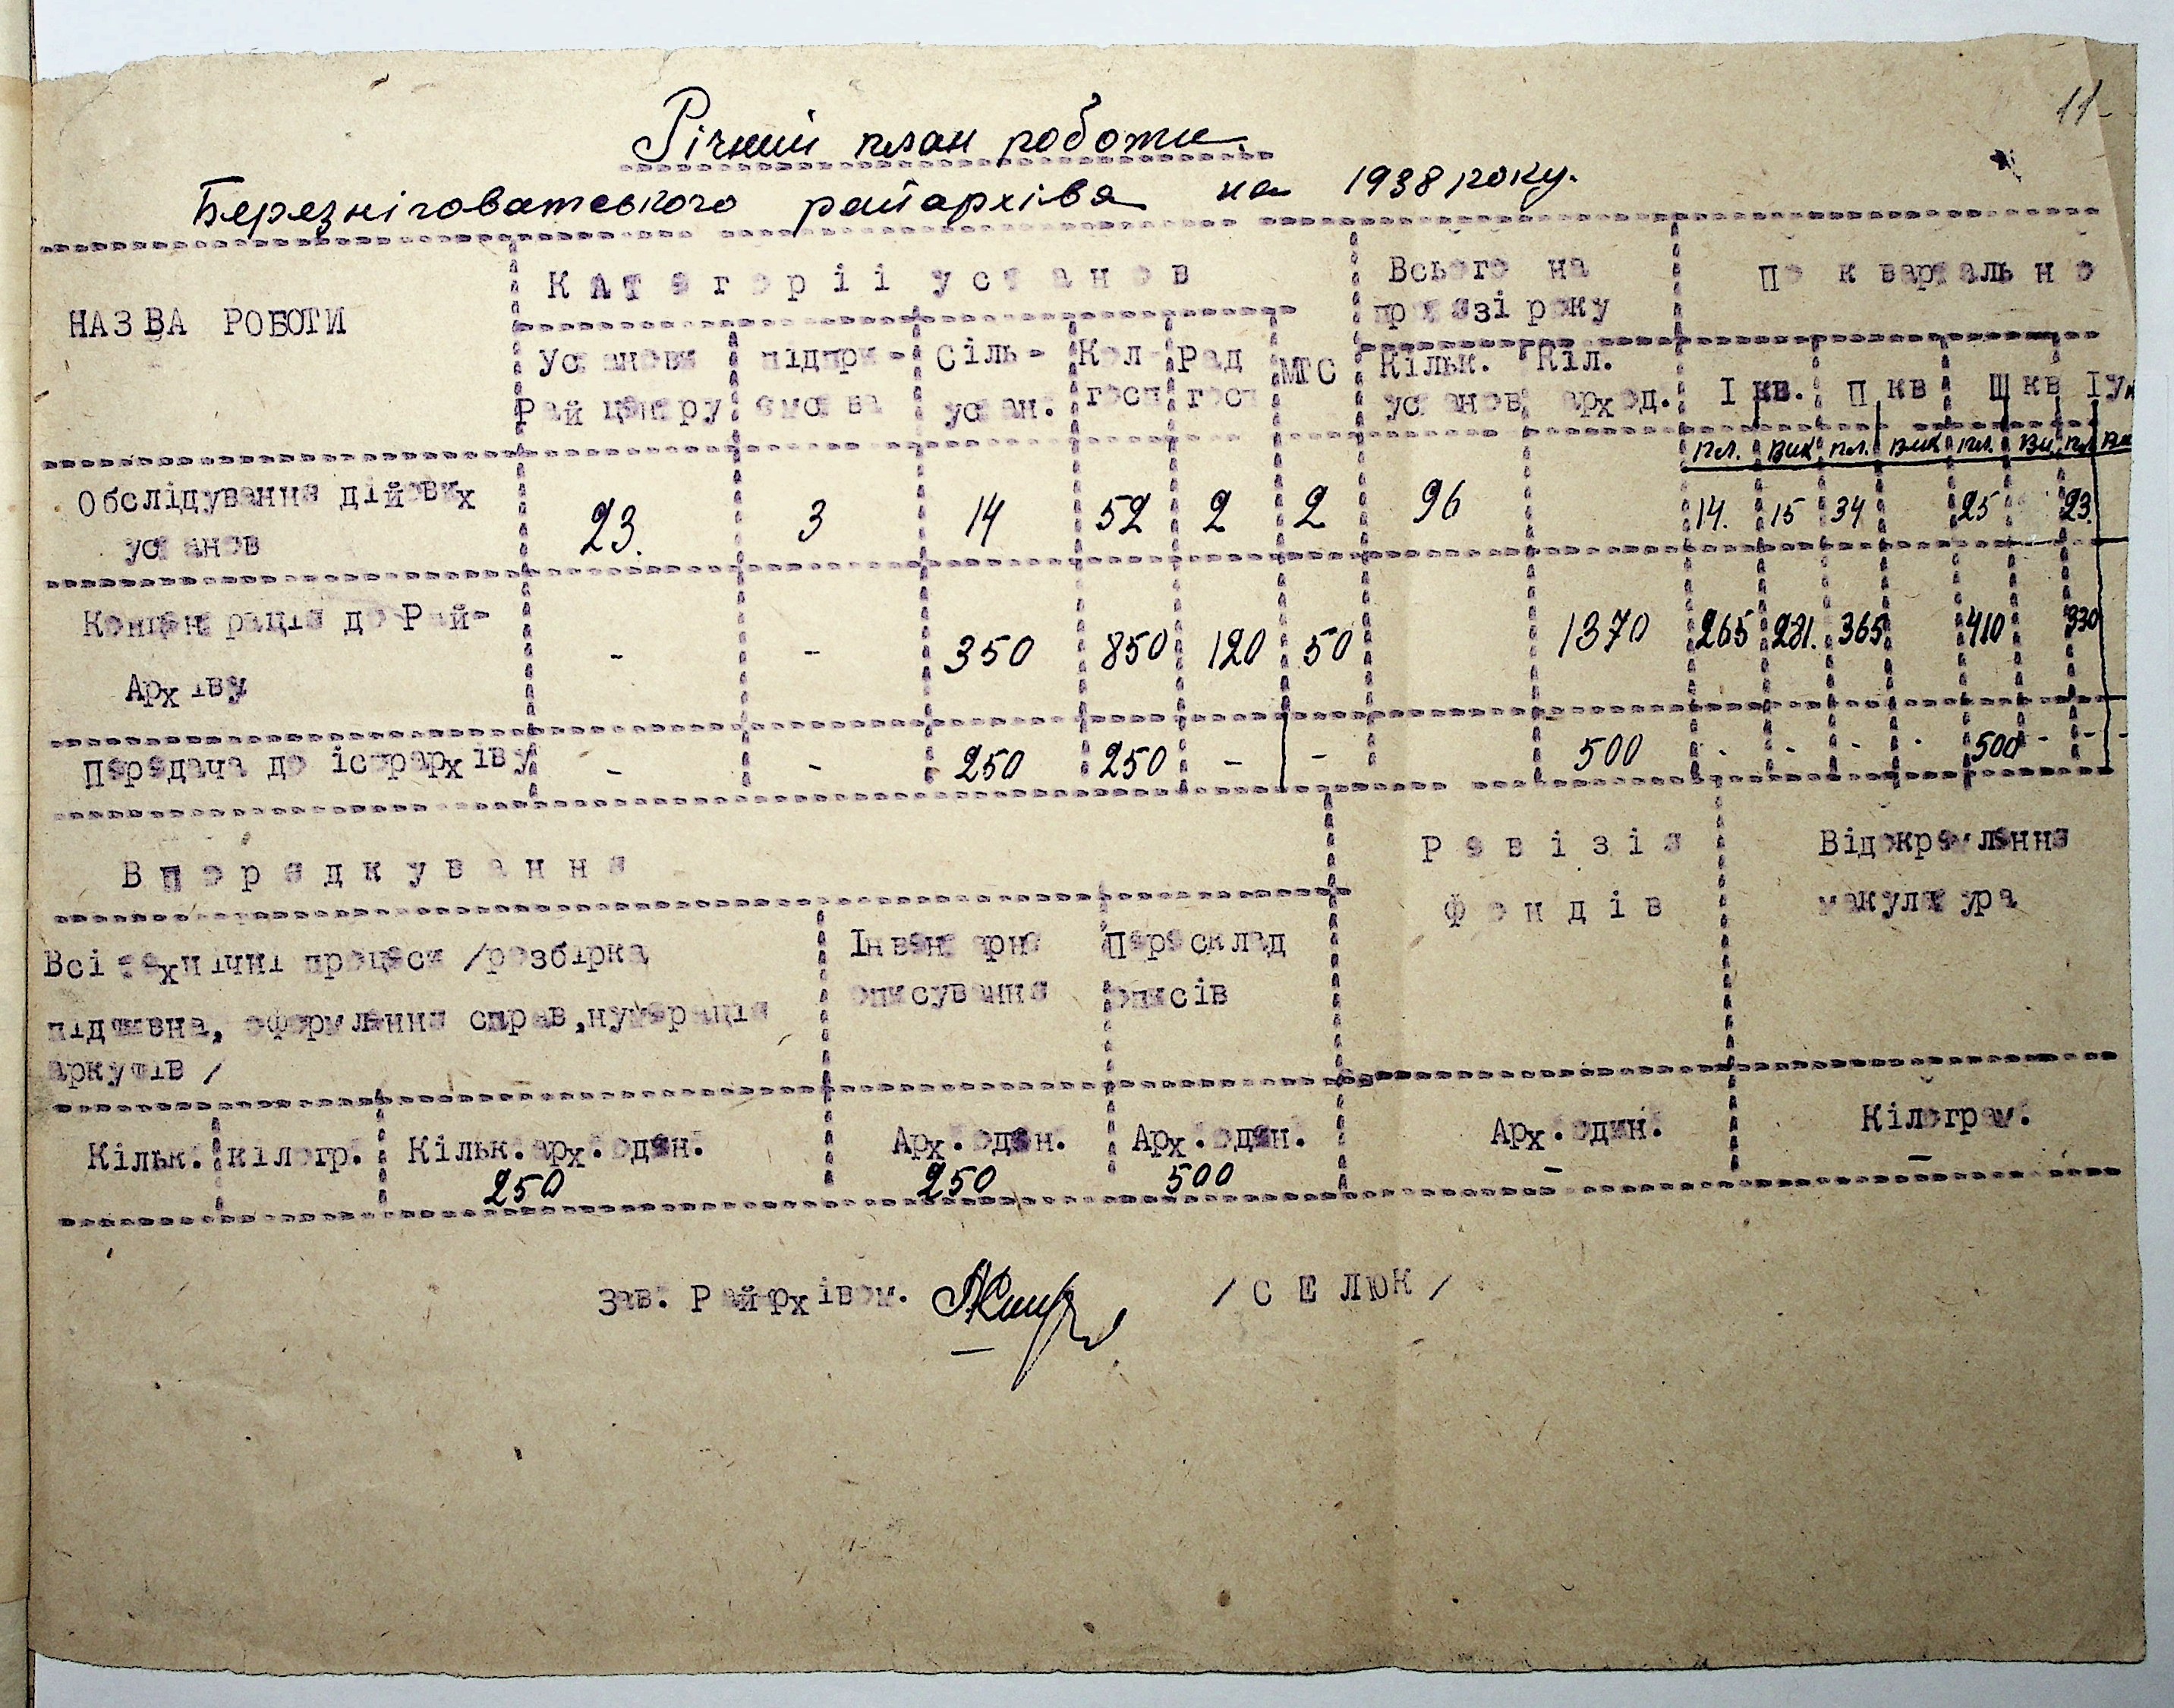 11
Річний план роботи
Березніговатського райархіва на 1938 року.
НАЗВА РОБОТИ
Категоріі установ
Всього на протязі року
По квартально
Установи Рай центру
підпри-ємства
Сіль-устан.
Кол госп
Рад госп
МТС
Кільк. установ
Кіл. арх од.
І кв.
П кв
Ш кв
ІУ
пл. вик пл. вик пл. ви пл ви
Обслідування дійових установ 23. 3 14 52 2 2 96 14. 15 34 25 23.
Концентрація до Рай-Архіву - - 350 850 120 50 1370 265 281. 365 410 330
Передача до істрархіву - - 250 250 - - 500 - - - - 500 - - -
Впорядкування
Ревізія фондів
Відокремлення макулатура
Всі технічні процеси /розбірка
підшивна, оформлення справ, нумерація
аркушів /
Інвентарне описування
Пересклад описів
Кільк. кілогр. Кільк. арх. один. Арх. один. Арх. один. Арх. один. Кілограм.
250 250 500 - -
Зав. Райархівом. /СЕЛЮК/